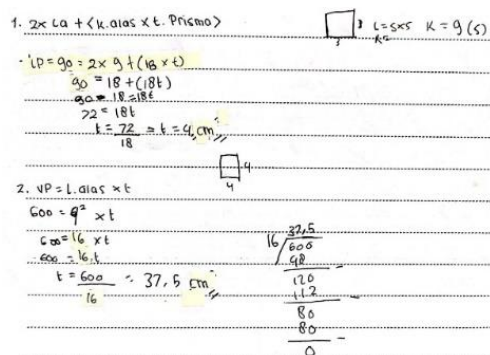 1. 2x La + (k.alas x t. Prisma)
3
3
L = s x s
K = 9 (s)
LP = 90 = 2x 9 + (18 x t)
90 = 18 + (18t)
90 - 18 = 18t
72 = 18t
t = 72/18 = t = 4 cm //
4
4
2. VP = L.alas x t
600 = 4² x t
600 = 16 x t
600 = 16.t
t = 600/16 = 37,5 cm //
37,5
16 / 600
48
120
112
80
80
0